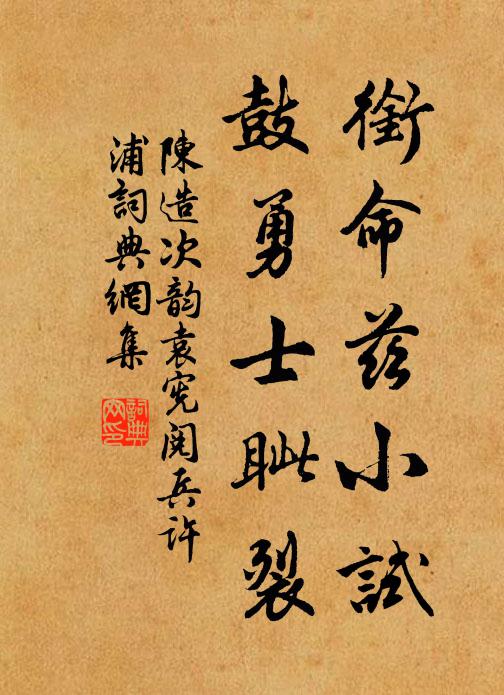 銜命茲小試
鼓勇士眦裂
陳造次韵袁宪阅兵許
浦詞典網集
詞典
网印